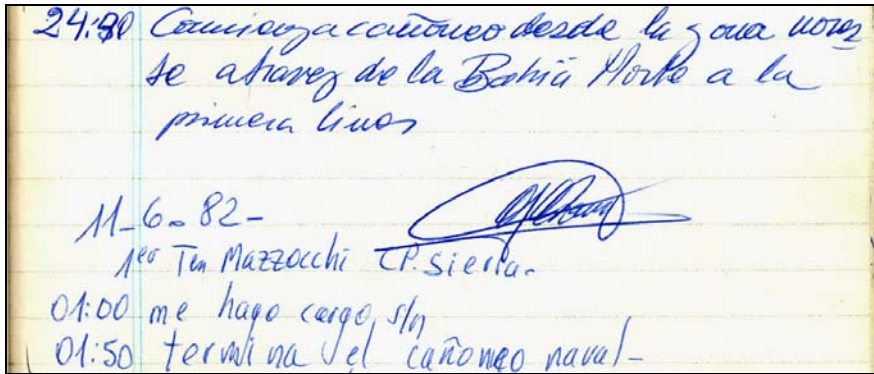 24:30 Comienza cañoneo desde la zona nores
te atravez de la Bahia Norte a la
primera linea
11-6-82-
1er Ten Mazzocchi CP. Sierra.
01:00 me hago cargo s/n
01:50 termina el cañoneo naval-